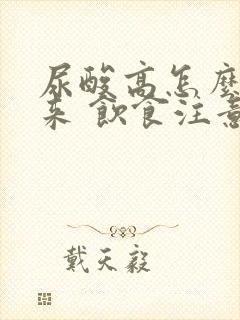 尿酸高怎麼
來 飲食注意
戴天毅